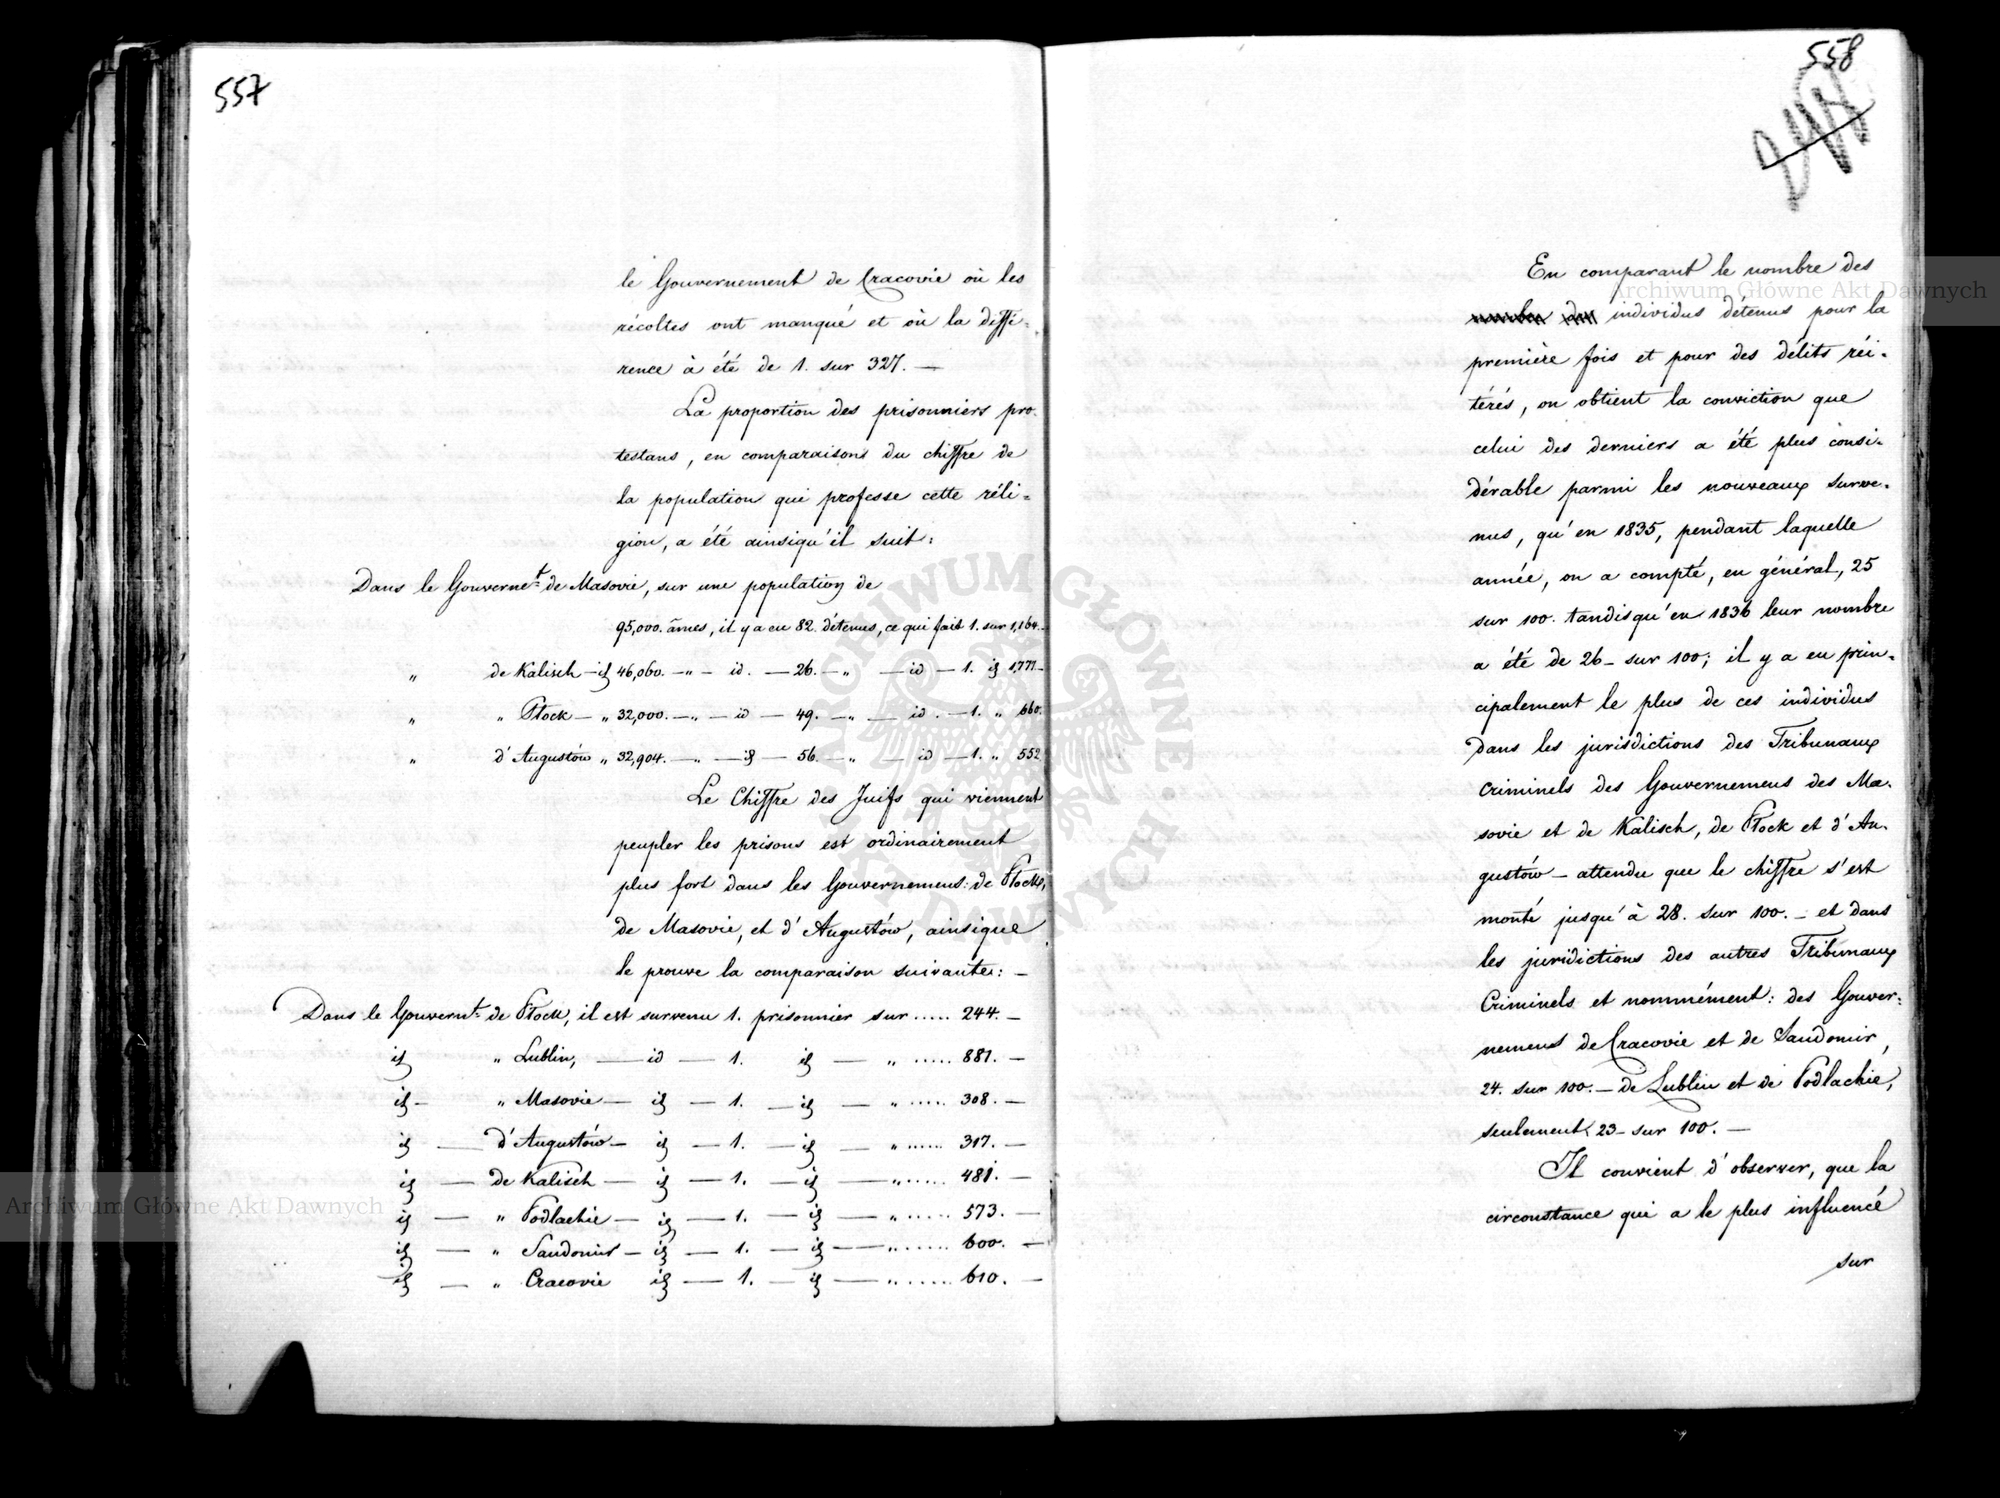 557
le Gouvernement de Cracovie où les
récoltes ont manqué et où la diffé=
rence à été de 1. sur 327. —
La proportion des prisonniers pro-
testans, en comparaisons du chiffre de
la population qui professe cette réli=
gion, a été ainsiqu'il suit:
Dans le Gouvernet de Masovie, sur une population de
95,000. âmes, il y a eu 82. détenus, ce qui fait 1. sur 1,164.
" de Kalisch — id 46,060. — " — id. — 26. — " — id — 1. id 1,771 —
" " Plock — " 32,000. — " — id — 49. — " — id. — 1. " 660.
" d'Augustów " 32,904. — " — id — 56. — " — id — 1. " 552
Le Chiffre des Juifs qui viennent
peupler les prisons est ordinairement
plus fort dans les Gouvernemens: de Plock,
de Masovie, et d'Augustów, ainsique
le prouve la comparaison suivante: —
Dans le Gouvernt de Plock, il est survenu 1. prisonnier sur ..... 244. —
id " Lublin, — id — 1. id — " ..... 881. —
id — " Masovie — id — 1. — id — " ..... 308. —
id — d'Augustów — id — 1. — id — " ...... 317. —
id — de Kalisch — id — 1. — id — " ..... 481. —
id — " Podlachie — id — 1. — id — " ...... 573. —
id — " Sandomir — id — 1. — id — " ...... 600. —
id — " Cracovie id — 1. — id — " ...... 610. —
558
En comparant le nombre des
individus détenus pour la
première fois et pour des délits réi=
térés, on obtient la conviction que
celui des derniers a été plus consi=
dérable parmi les nouveaux surve=
nus, qu'en 1835, pendant laquelle
année, on a compté, en général, 25
sur 100. tandisqu'en 1836 leur nombre
a été de 26 — sur 100; il y a eu prin=
cipalement le plus de ces individus
dans les jurisdictions des Tribunaux
Criminels des Gouvernemens des Ma=
sovie et de Kalisch, de Plock et d'Au=
gustów — attendu que le chiffre s'est
monté jusqu'à 28. sur 100. — et dans
les juridictions des autres Tribunaux
Criminels et nommément: des Gouver=
nemens de Cracovie et de Sandomir,
24. sur 100. — de Lublin et de Podlachie,
seulement 23 — sur 100. —
Il convient d'observer, que la
circonstance qui a le plus influencé
sur
Archiwum Główne Akt Dawnych
Archiwum Główne Akt Dawnych
ARCHIWUM GŁÓWNE AKT DAWNYCH